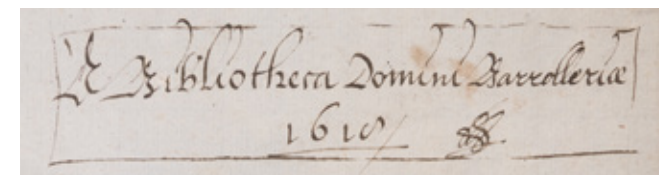 E Bibliotheca Domini Barrolleriæ
1618